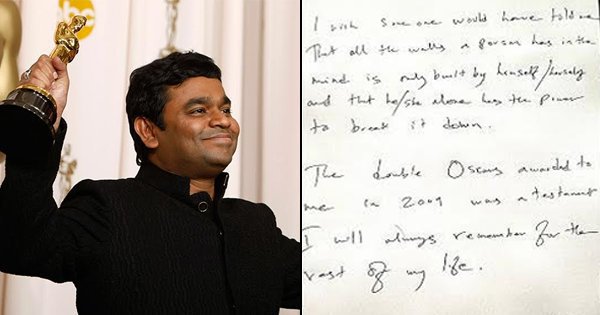 I wish someone would have told me
That all the walls a person has in the
mind is only built by himself/herself
and that he/she alone has the power
to break it down.
The double Oscars awarded to
me in 2009 was a testament
I will always remember for the
rest of my life.